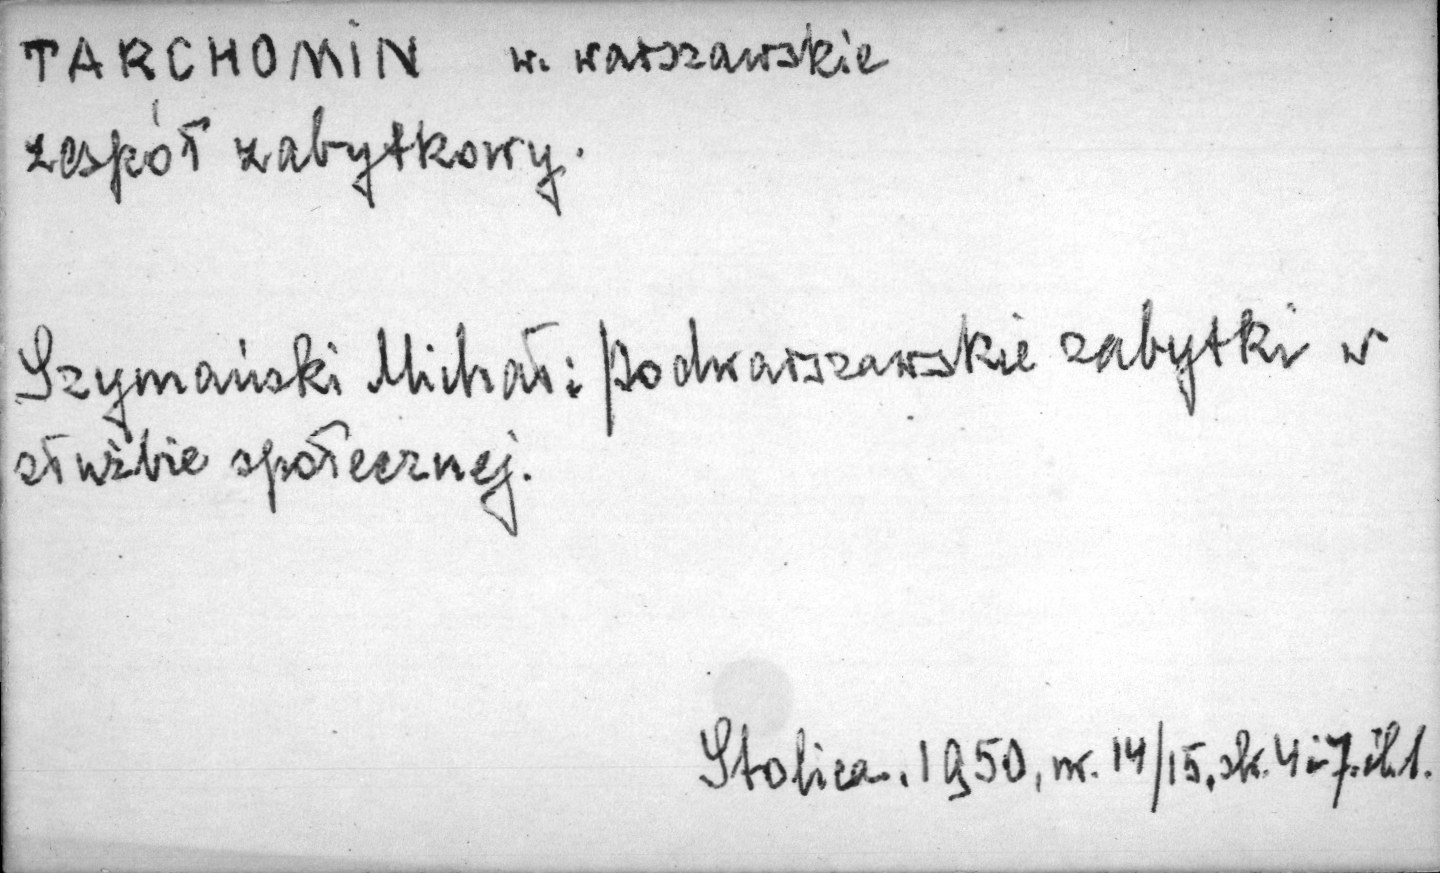 TARCHOMIN w. warszawskie
zespół zabytkowy.
Szymański Michał: Podwarszawskie zabytki w
służbie społecznej.
Stolica. 1950, nr. 14/15, str. 4 i 7. il. 1.